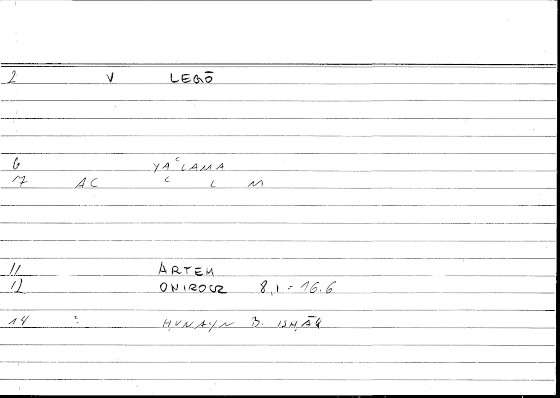 2 V LEGŌ
6 YAʿLAMA
7 AC ʿ L M
11 ARTEM
12 ONIROCR 8,1 = 16.6
14 : ḤUNAYN B. ISḤĀQ